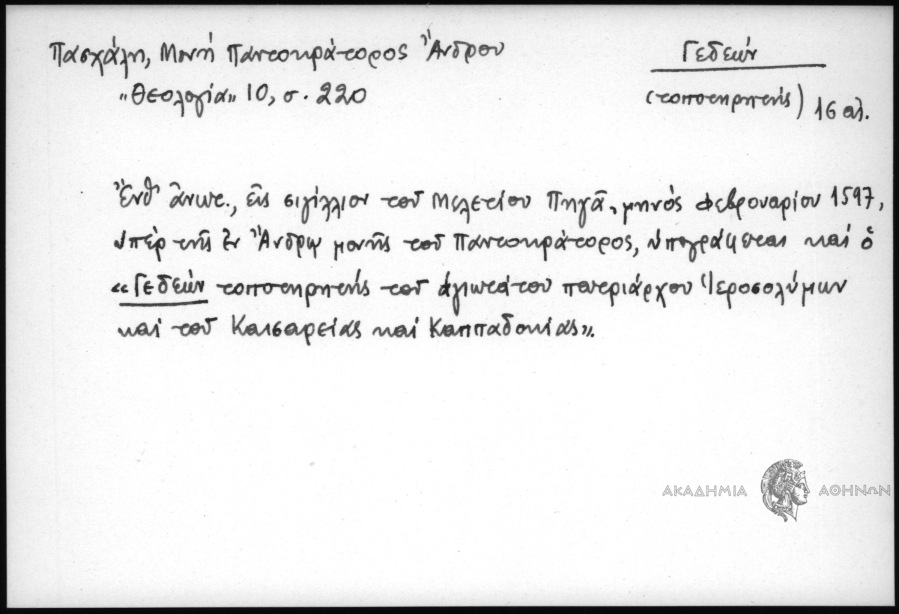 Πασχάλη, Μονή Παντοκράτορος Ἄνδρου
Γεδεών
«Θεολογία» 10, σ. 220
(τοποτηρητής) 16 αἰ.
Ἔνθ' ἄνωτ., εἰς σιγίλλιον τοῦ Μελετίου Πηγᾶ, μηνός Φεβρουαρίου 1597,
ὑπέρ τῆς ἐν Ἄνδρῳ μονῆς τοῦ Παντοκράτορος, ὑπογράφεται καί ὁ
«Γεδεών τοποτηρητής τοῦ ἁγιωτάτου πατριάρχου Ἱεροσολύμων
καί τοῦ Καισαρείας καί Καππαδοκίας».
ΑΚΑΔΗΜΙΑ ΑΘΗΝΩΝ